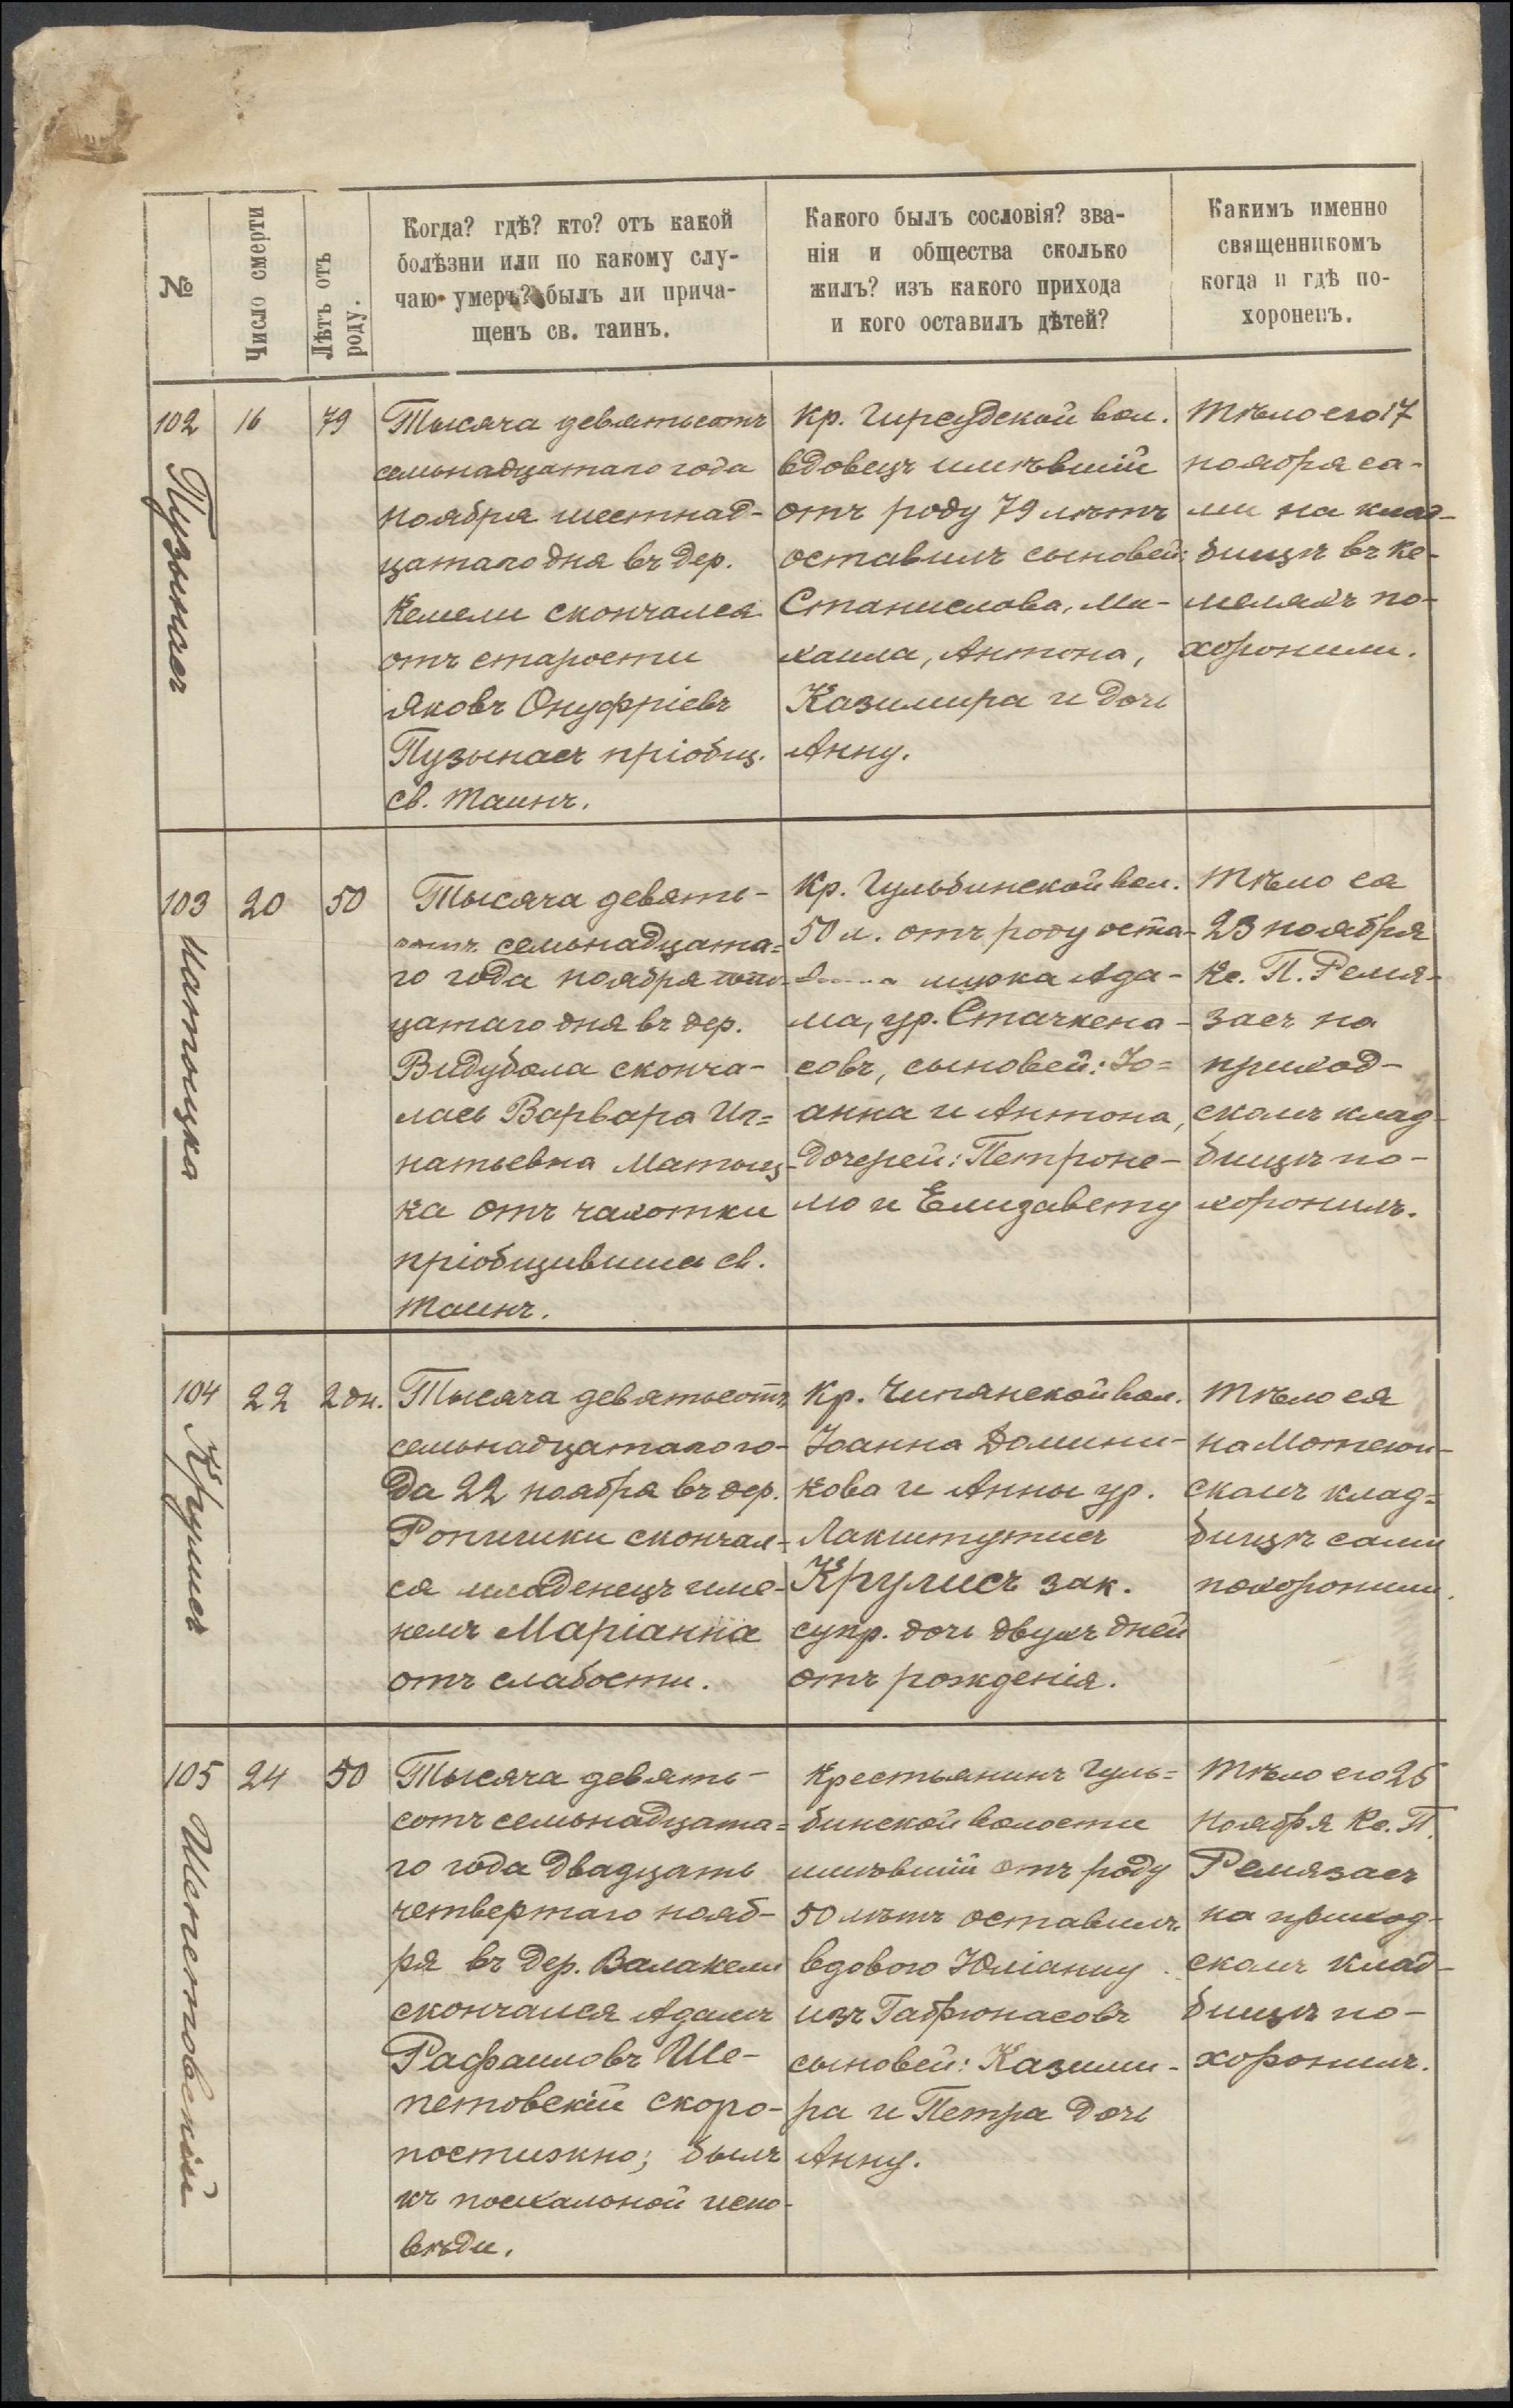 №
Число смерти
Лѣтъ отъ
роду.
Когда? гдѣ? кто? отъ какой
болѣзни или по какому слу-
чаю умеръ? былъ ли прича-
щенъ св. таинъ.
Какого былъ сословія? зва-
нія и общества сколько
жилъ? изъ какого прихода
и кого оставилъ дѣтей?
Какимъ именно
священникомъ
когда и гдѣ по-
хороненъ.
102
Пузынасъ
16
79
Тысяча девятьсотъ
семьнадцатаго года
ноября шестнад-
цатаго дня въ дер.
Кемели скончался
отъ старости
Яковъ Онуфріевъ
Пузынасъ пріобщ.
св. таинъ.
Кр. Гирсудской вол.
вдовецъ имѣвшій
отъ роду 79 лѣтъ
оставилъ сыновей:
Станислава, Ми-
хаила, Антона,
Казимира и дочь
Анну.
Тѣло его 17
ноября са-
ми на клад-
бищѣ въ Ке-
меляхъ по-
хоронили.
103
20
50
Тысяча девять-
сотъ семьнадцата=
го года ноября
цатаго дня въ дер.
Видубола сконча-
лась Варвара Иг=
натьевна Матыц-
ка отъ чахотки
пріобщившись св.
таинъ.
Кр. Гульбинской вол.
50 л. отъ роду оста-
мужа Ада-
ма, ур. Стачкена-
совъ, сыновей: Іо=
анна и Антона,
дочерей: Петроне-
лю и Елизавету
Тѣло ея
23 ноября
Кс. П. Ремя-
засъ на
приход-
скомъ клад-
бищѣ по-
хоронилъ.
104
Крулисъ
22
2 дн.
Тысяча девятьсотъ
семьнадцатаго го-
да 22 ноября въ дер.
скончал-
ся младенецъ име-
немъ Маріанна
отъ слабости.
Кр. Чипянской вол.
Іоанна Домини-
кова и Анны ур.
Лакштутисъ
Крулисъ зак.
супр. дочь двухъ дней
отъ рожденія.
Тѣло ея
на
скомъ клад=
бищѣ сами
похоронили.
105
Шепетовскій
24
50
Тысяча девять-
сотъ семьнадцата=
го года двадцать
четвертаго нояб-
ря въ дер. Валакели
скончался Адамъ
Рафаиловъ Ше-
петовскій скоро-
постижно; былъ
къ пасхальной испо-
вѣди.
Крестьянинъ Гуль=
бинской волости
имѣвшій отъ роду
50 лѣтъ оставилъ
вдовою Юліанну
изъ Габрюнасовъ
сыновей: Казими-
ра и Петра дочь
Анну.
Тѣло его 25
ноября Кс. П.
Ремязасъ
на приход-
скомъ клад-
бищѣ по-
хоронилъ.